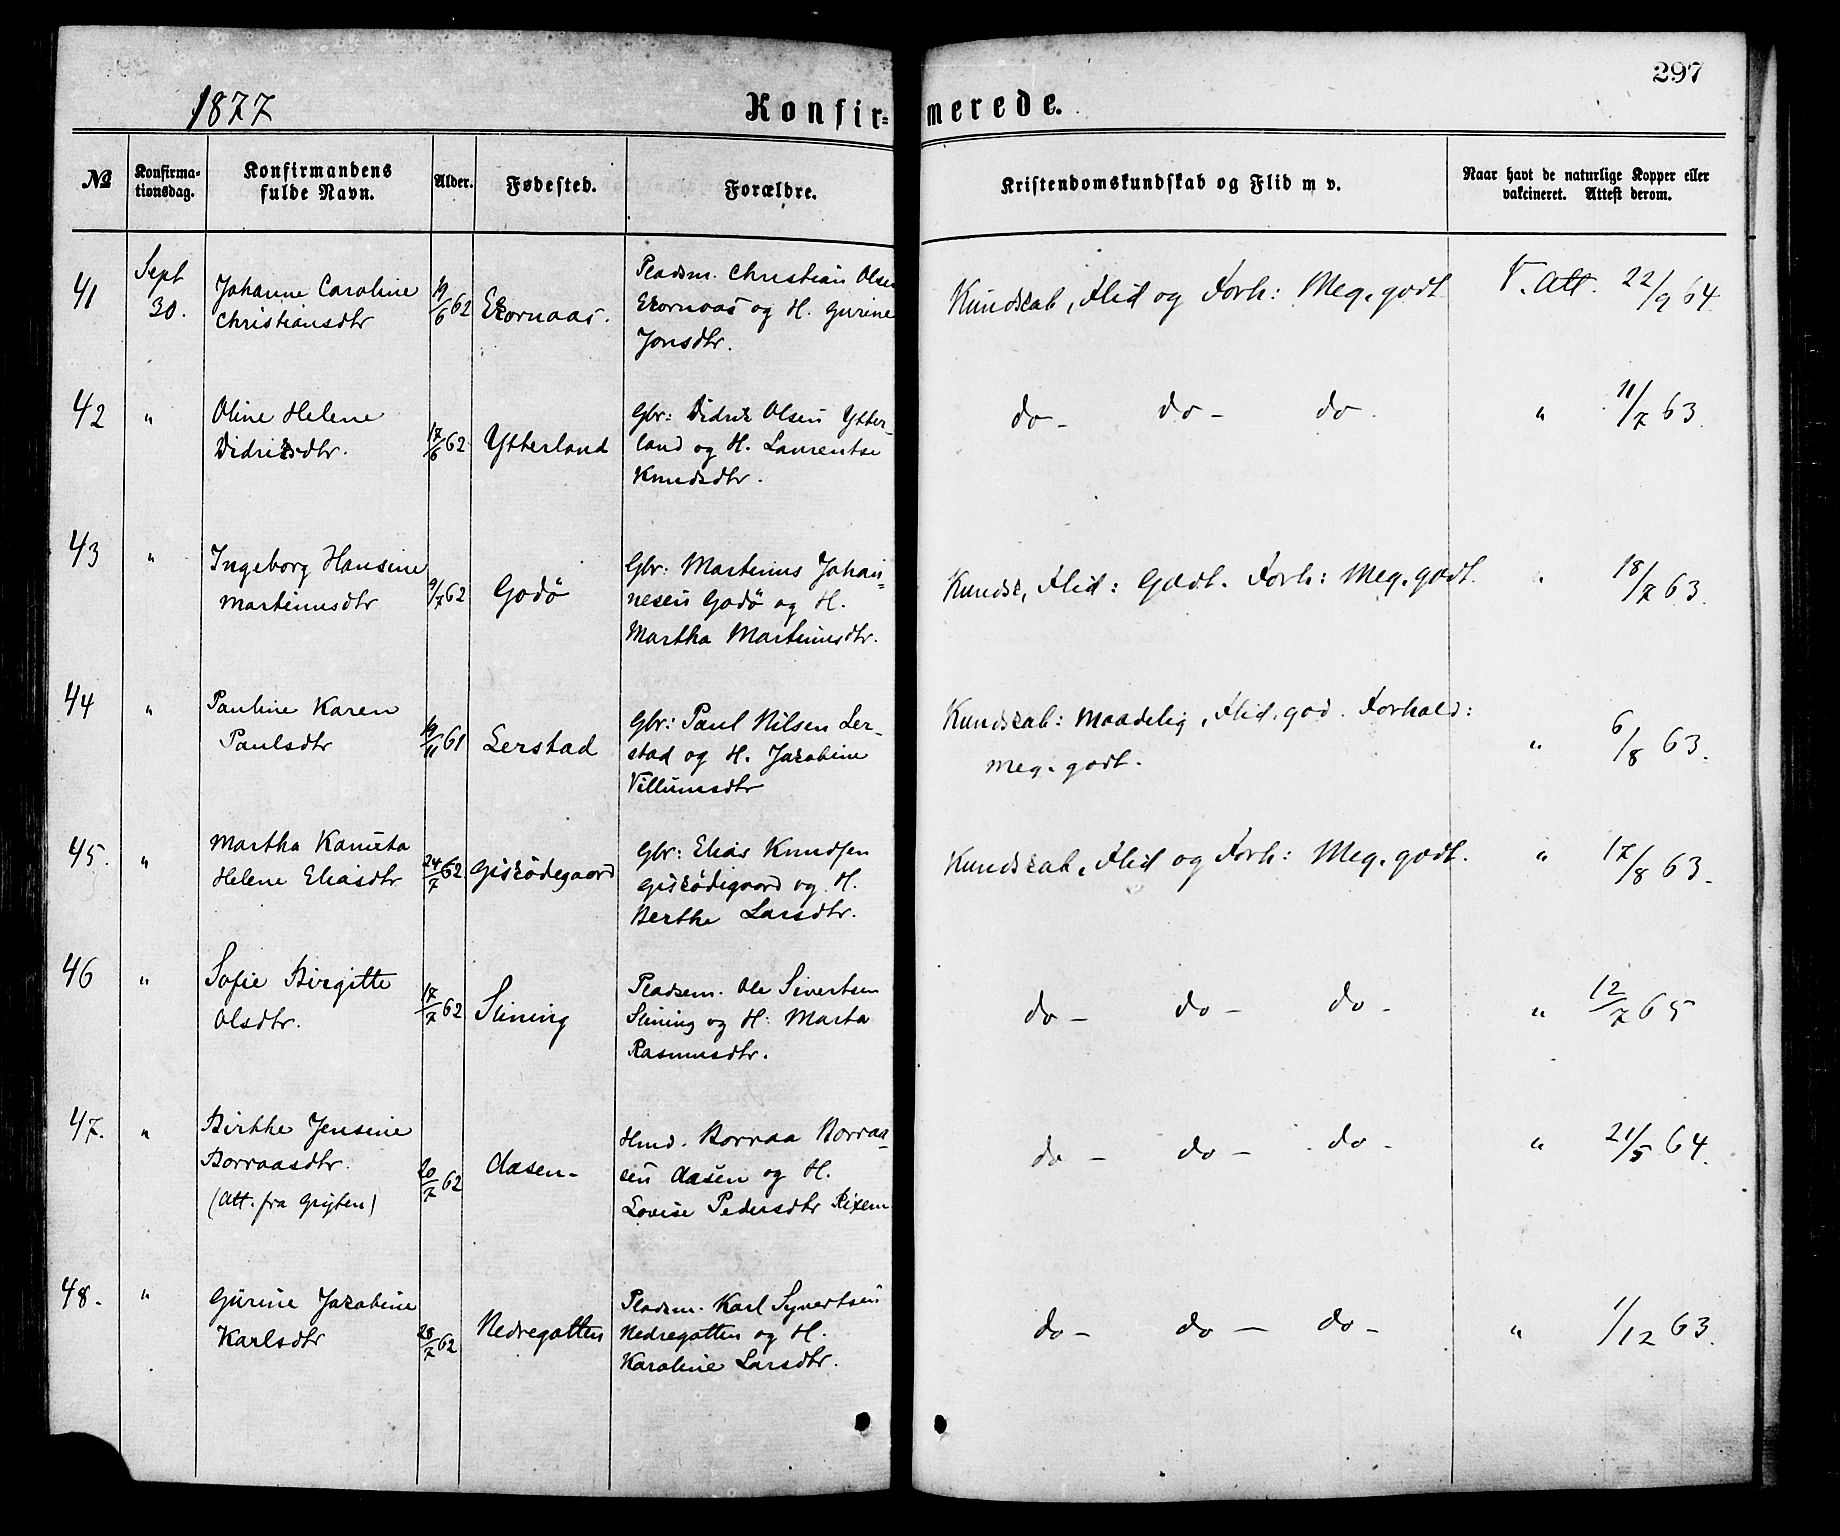 297
1877 Konfir-merede.
№ Konfirma-tionsdag. Konfirmandens fulde Navn. Alder. Fødested. Forældre. Kristendomskundskab og Flid m v. Naar havt de naturlige Kopper eller vakcineret. Attest derom.
41 Sept 30. Johanne Caroline Christiansdtr 19/6 62 Ekornaas. Pladsm. Christian Olsen Ekornaas og H. Gurine Jonsdtr. Kundskab, Flid og Forh: Meg. godt V. Att. 22/9 64
42 " Oline Helene Didriksdtr. 17/6 62 Ytterland Gbr: Didrik Olsen Ytterland og H. Laurentse Knudsdtr. do - do - do " 11/7 63.
43 " Ingeborg Hansine Martinusdtr 9/7 62 Godø Gbr: Martinus Johannesen Godø og H. Martha Martinusdtr. Kundsk, Flid: Godt. Forh: Meg. godt. " 18/7 63.
44 " Pauline Karen Paulsdtr 19/11 61 Lerstad Gbr: Paul Nilsen Lerstad og H. Jakobine Villumsdtr Kundskab: maadelig, Flid. god. Forhold: meg. godt. " 6/8 63.
45. " Martha Kanuta Helene Eliasdtr 24/7 62 Giskødegaard Gbr: Elias Knudsen Giskødegaard og H. Berthe Larsdtr. Kundskab, Flid og Forh: Meg. godt. " 17/8 63.
46 " Sofie Birgitte Olsdtr. 17/7 62 Slining Pladsem. Ole Sivertsen Slining og H: Marta Rasmusdtr. do - do - do - " 12/7 65
47. " Birthe Jensine Borraasdtr. (Att. fra Gryten) 20/7 62 Aasen - Hmd. Borraa Borraasen Aasen og H. Lovise Pedersdtr do - do - do - " 21/5 64.
48. " Gurine Jakobine Karlsdtr 28/7 62 Nedregotten Pladsm. Karl Syvertsen Nedregotten og H. Karoline Larsdtr. do - do - do - " 1/12 63.